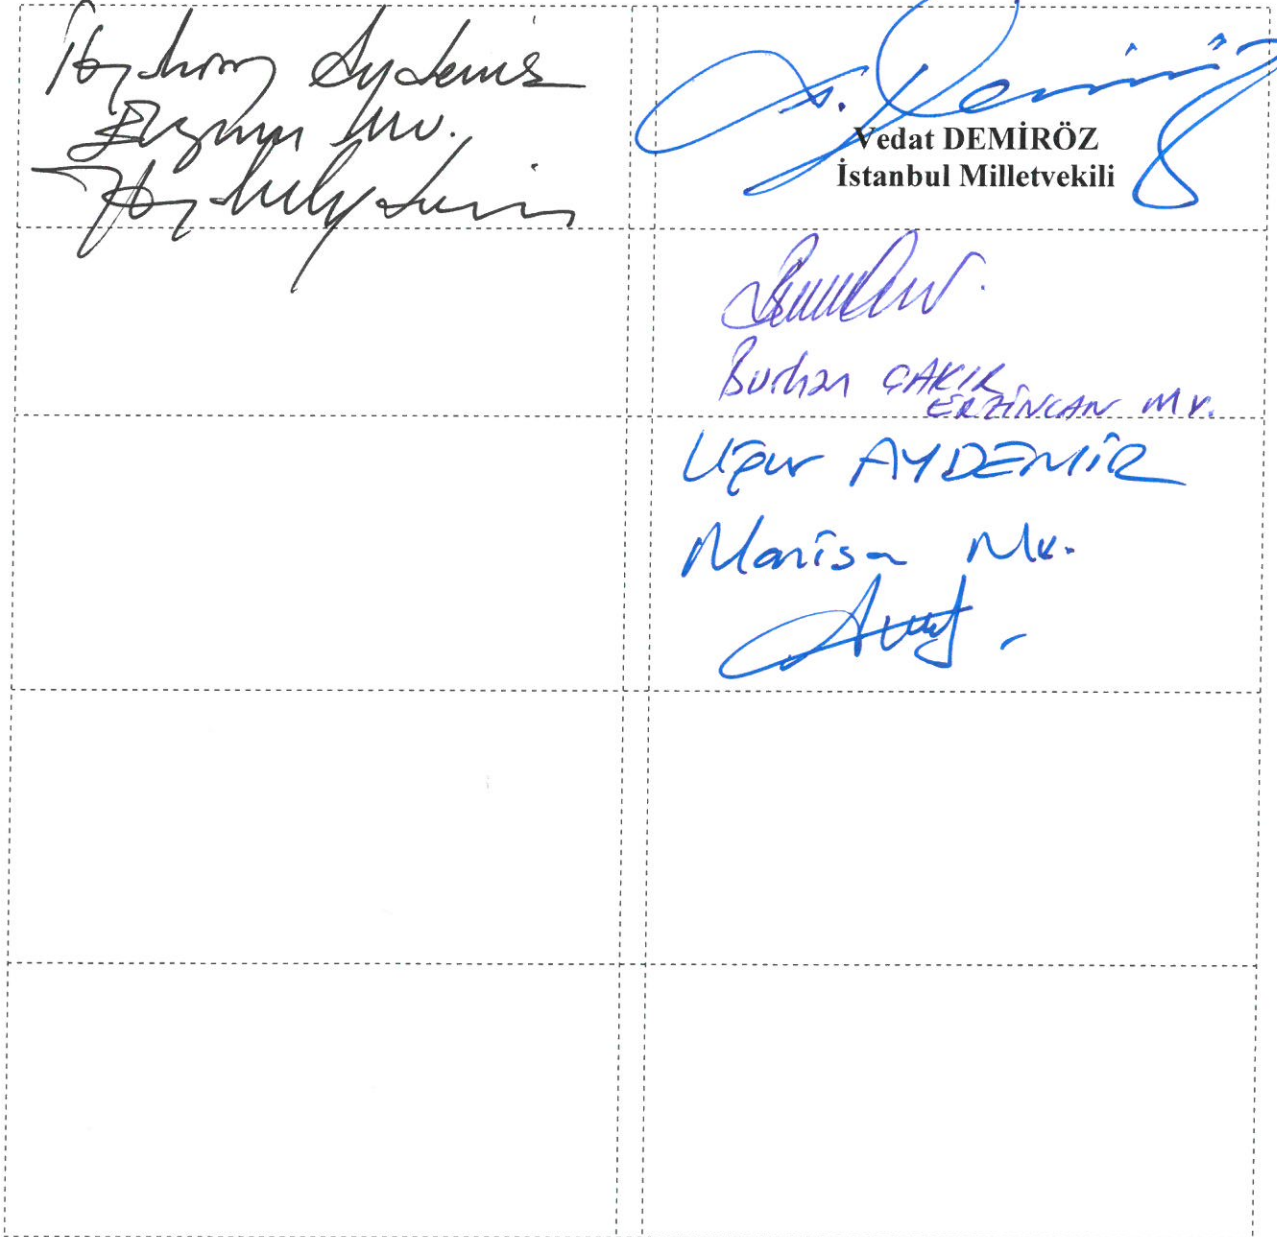 İbrahim Aydemir
Erzurum Mv.
Vedat DEMİRÖZ
İstanbul Milletvekili
Burhan ÇAKIR
ERZİNCAN Mv.
Uğur AYDEMİR
Manisa Mv.